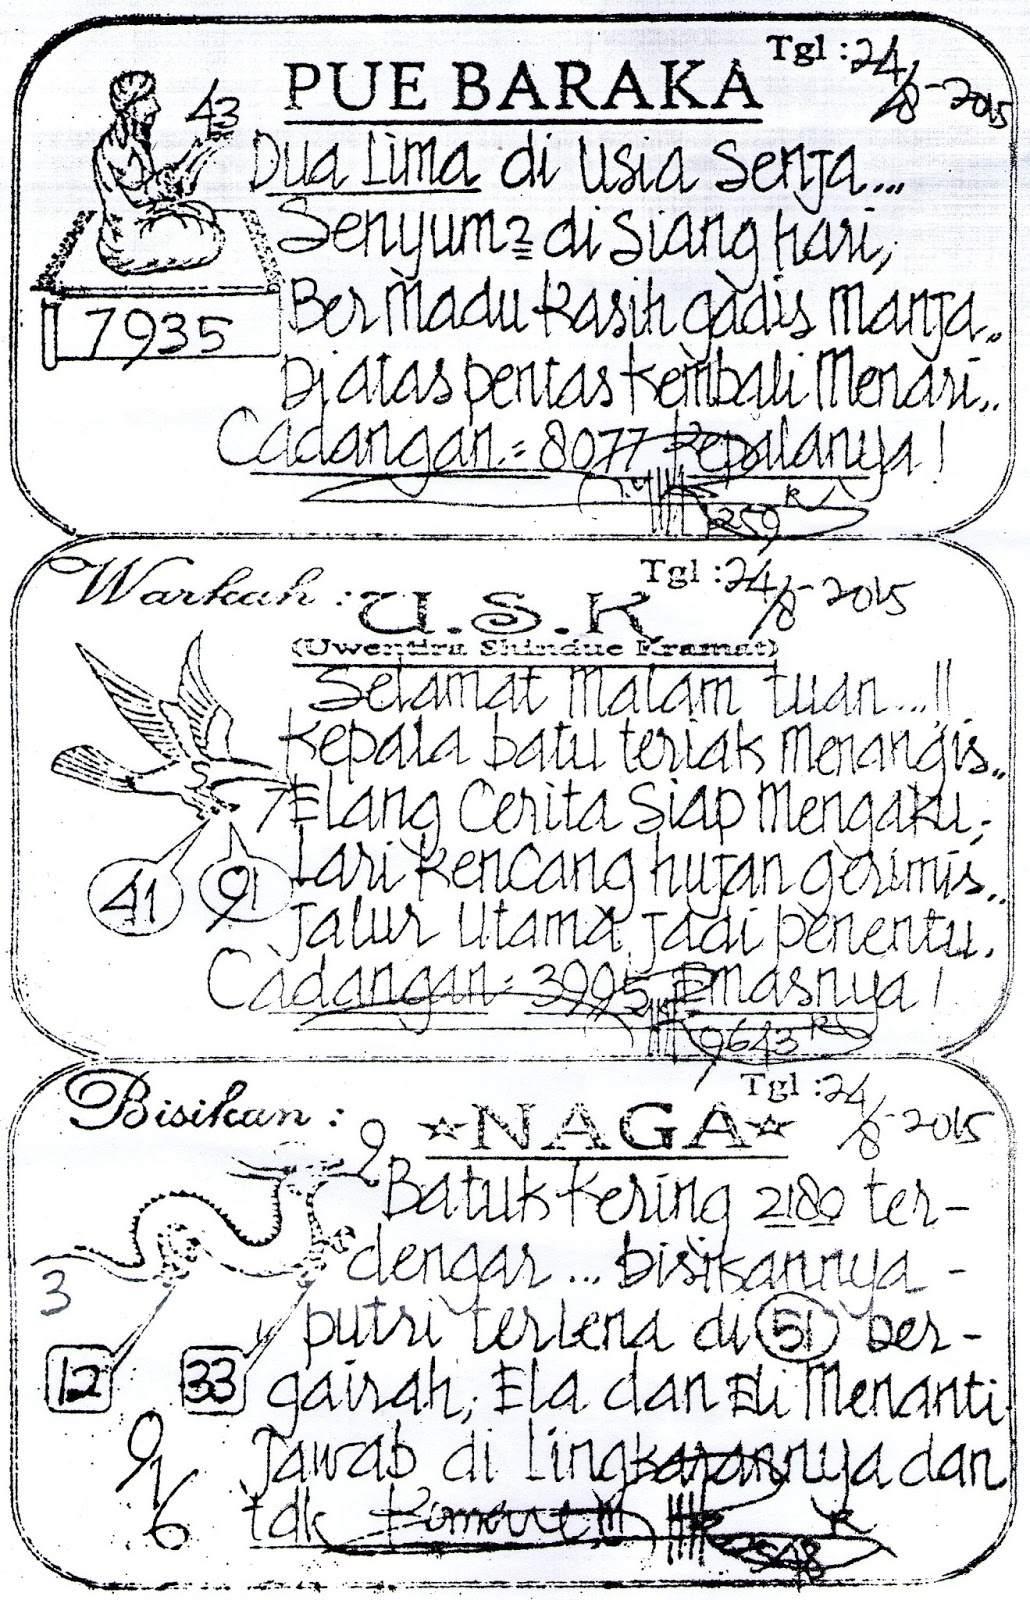 Tgl : 24/8-2015
PUE BARAKA
43
Dua Lima di Usia Senja...
Senyum2 di Siang hari,
Bermadu kasih gadis manja..
7935
Di atas pentas kembali Menari..
Cadangan = 8077 kepalanya !
259 R
Warkah : U.S.K
Tgl : 24/8-2015
(Uwentira Shindue Kramat)
Selamat Malam tuan...!!
Kepala batu teriak Menangis..
7
Elang Cerita Siap Mengaku,
Lari kencang hujan gerimis..
41 91
Jalur Utama jadi penentu.
Cadangan = 3995 Emasnya !
9643 R
Bisikan :
Tgl : 24/8-2015
NAGA
2
Batuk kering 2180 ter-
dengar ... bisikannya -
3
putri terlena di 51 ber-
12 33
gairah, Ela dan Eli Menanti
9
Jawab di lingkarannya dan
1
6
tdk
2548 R